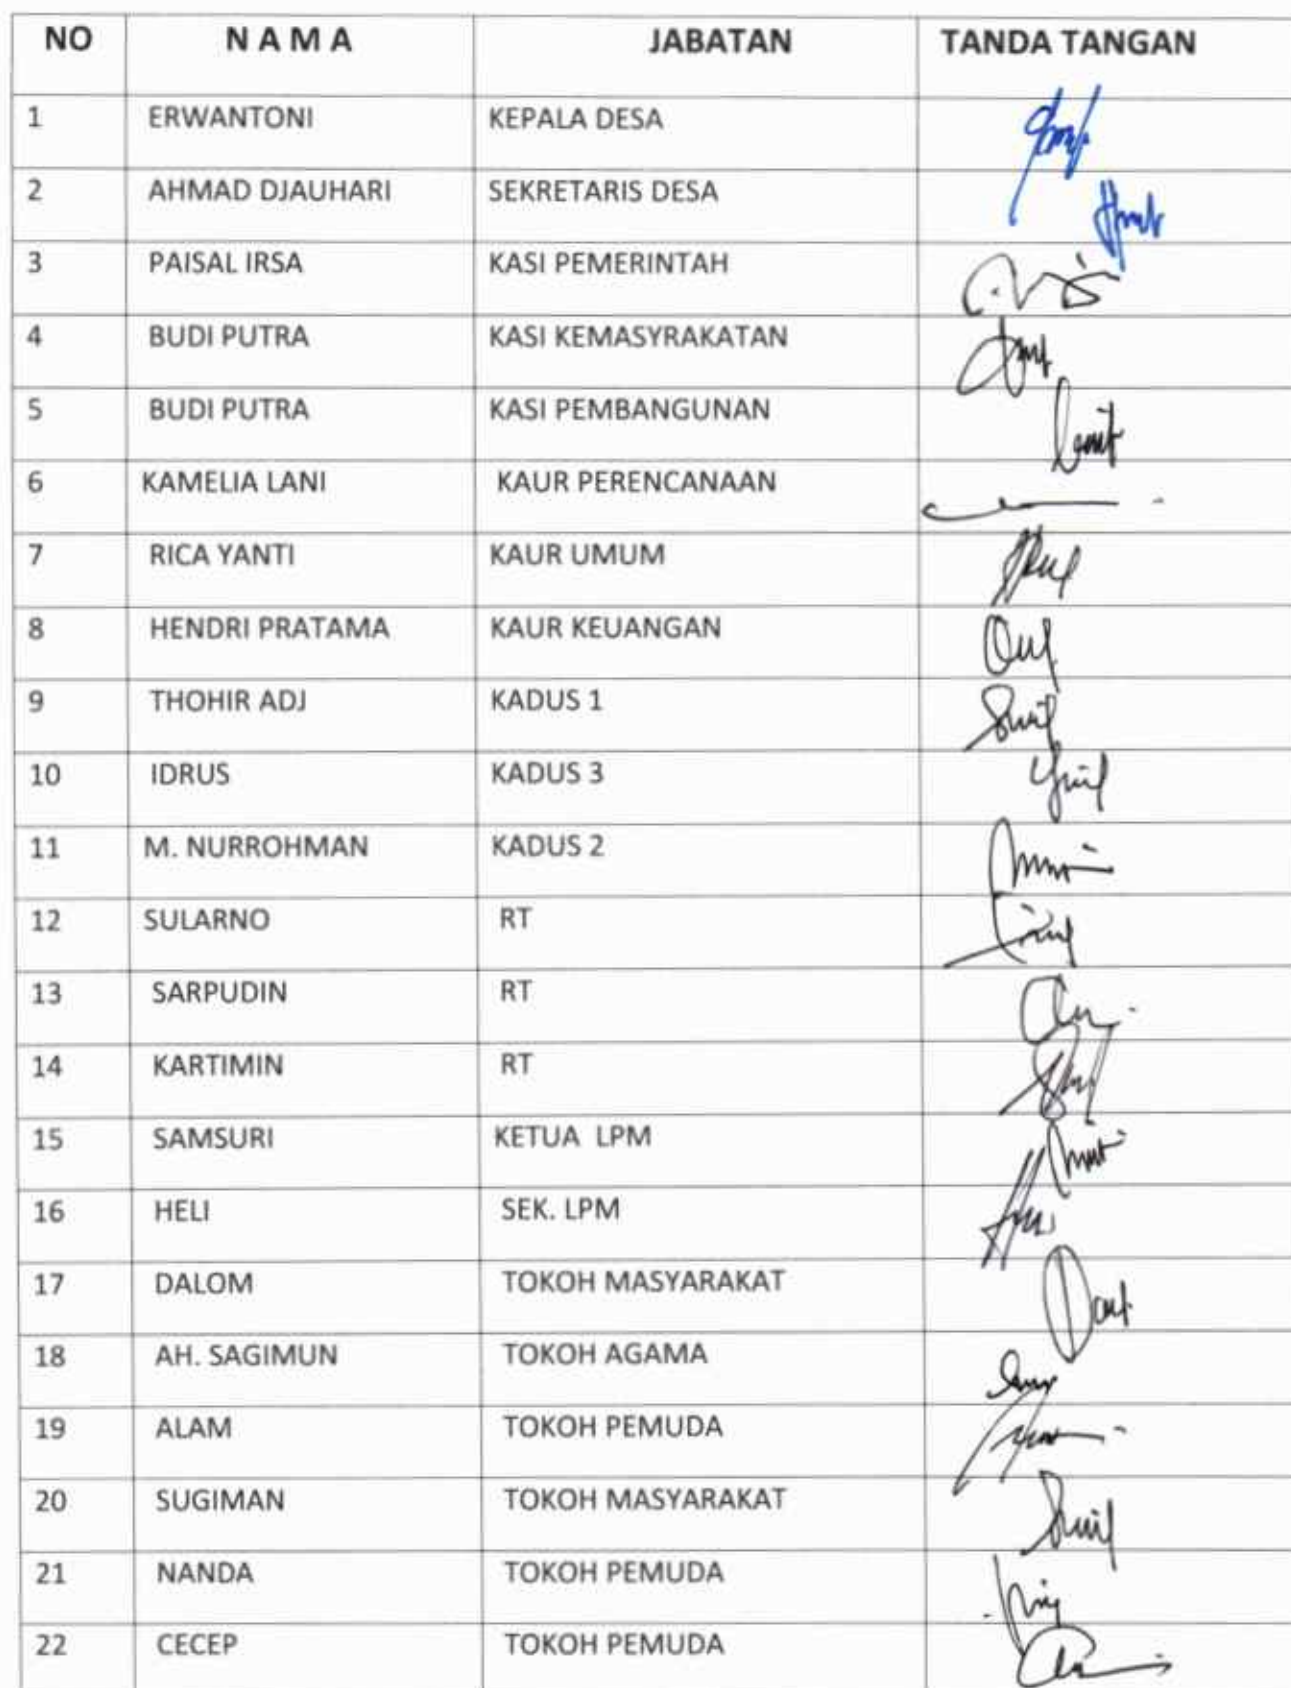 NO N A M A JABATAN TANDA TANGAN
1 ERWANTONI KEPALA DESA
2 AHMAD DJAUHARI SEKRETARIS DESA
3 PAISAL IRSA KASI PEMERINTAH
4 BUDI PUTRA KASI KEMASYRAKATAN
5 BUDI PUTRA KASI PEMBANGUNAN
6 KAMELIA LANI KAUR PERENCANAAN
7 RICA YANTI KAUR UMUM
8 HENDRI PRATAMA KAUR KEUANGAN
9 THOHIR ADJ KADUS 1
10 IDRUS KADUS 3
11 M. NURROHMAN KADUS 2
12 SULARNO RT
13 SARPUDIN RT
14 KARTIMIN RT
15 SAMSURI KETUA LPM
16 HELI SEK. LPM
17 DALOM TOKOH MASYARAKAT
18 AH. SAGIMUN TOKOH AGAMA
19 ALAM TOKOH PEMUDA
20 SUGIMAN TOKOH MASYARAKAT
21 NANDA TOKOH PEMUDA
22 CECEP TOKOH PEMUDA